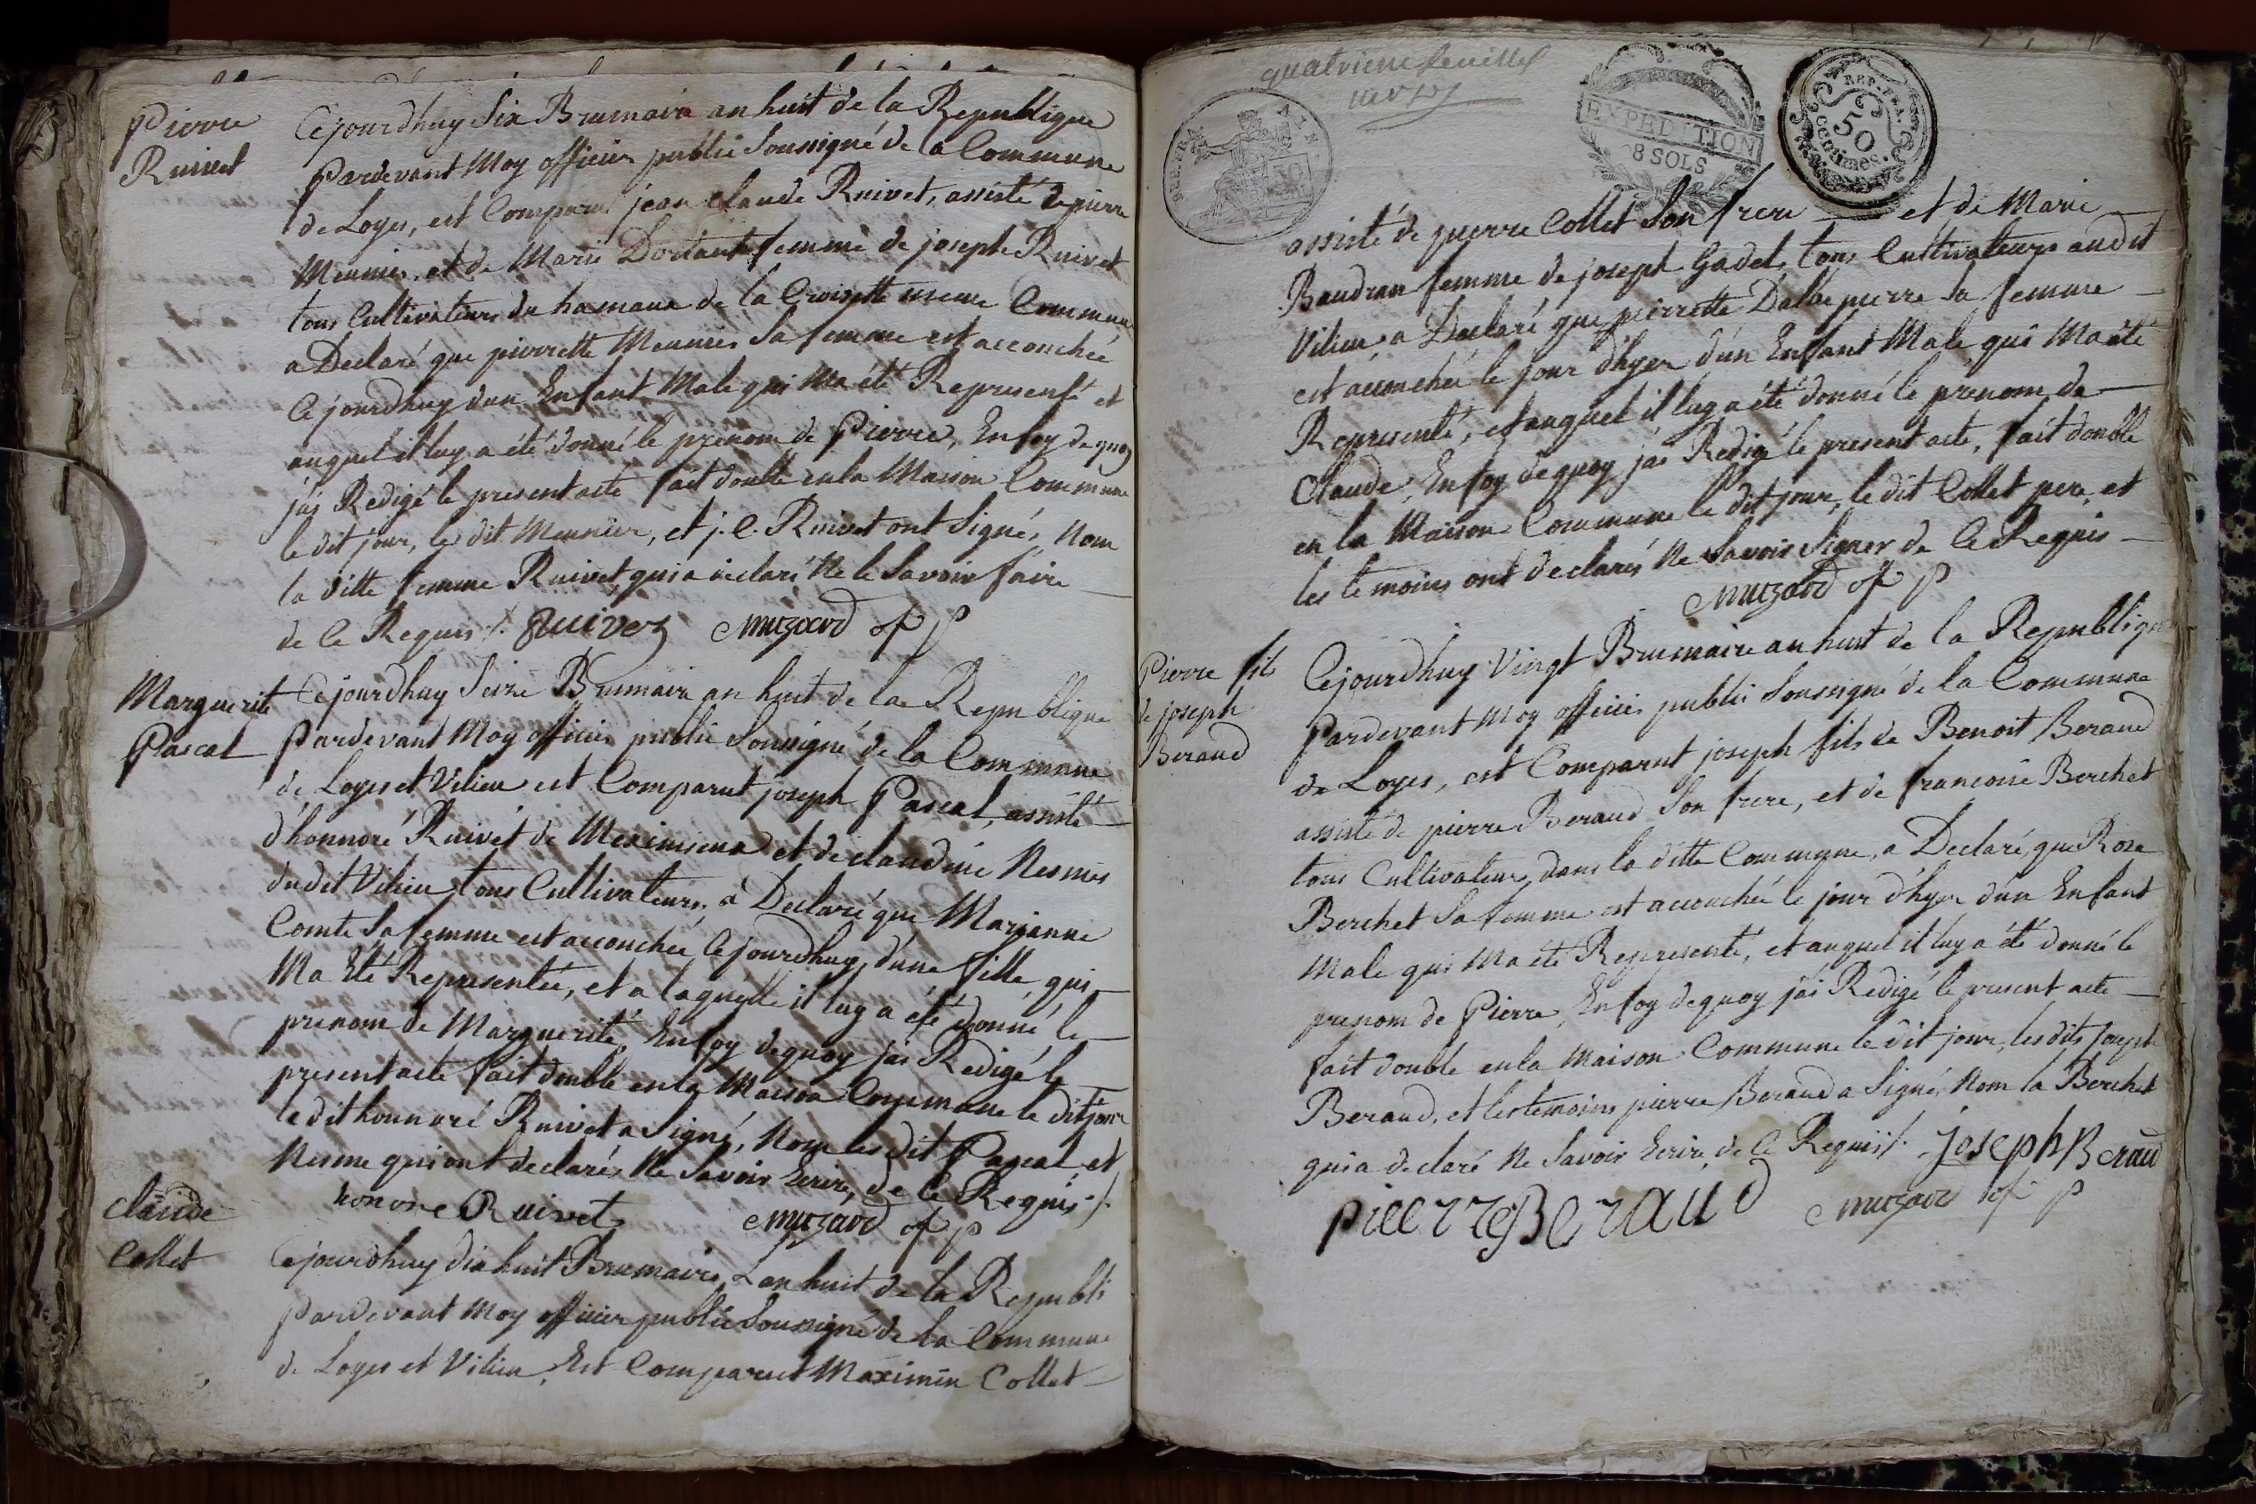 Pierre
Ruivet
Cejourdhuy Six Brumaire an huit de la Republique
Pardevant Moy officier public Soussigné de la Commune
de Loyes, est Comparu jean claude Ruivet, assisté de pierre
Meunier, et de Marie Dortant femme de joseph Ruivet
tous Cultivateurs du hameau de la Croisette meme Commune
a Declaré que pierrette Meunier Sa femme est accouchée
Cejourdhuy d'un Enfant Male qui Ma été Representé et
auquel il luy a été donné le prenom de Pierre, En foy de quoy
j'ai Redigé le present acte fait double en la Maison Commune
le dit jour, le dit Meunier, et j. C. Ruivet ont Signé, Nom
la ditte femme Ruivet qui a declaré Ne le Savoir faire
de Ce Requis /. Ruivez Muzard of p
Marguerite
Pascal
Cejourdhuy Seize Brumaire an huit de la Republique
Pardevant Moy officier public Soussigné de la Commune
de Loyes et Vilieu est Comparut joseph Pascal, assisté
d'honnoré Ruivet de Meximieux et de claudine Nesmes
du dit Vilieu tous Cultivateurs, a Declaré que Marianne
Comte Sa femme est accouchée Cejourdhuy d'une fille qui
Ma Eté Representée, et a laquelle il luy a été donné le
prenom de Marguerite, En foy de quoy j'ai Redigé le
present acte fait double en la Maison Commune le dit jour
le dit honnoré Ruivet a Signé, Nom les dit Pascal et
Nesme qui ont declarés Ne Savoir Ecrire, de Ce Requis /.
honore Ruivet Muzard of p
claude
Collet
Cejourdhuy dix huit Brumaire, L'an huit de la Republi
Pardevant Moy officier public Soussigné de la Commune
de Loyes et Vilieu, Est Comparut Maximin Collet
quatrieme feuillet
REP. FRA.
EXPEDITION
8 SOLS
REP. FRA.
50
centimes.
assisté de pierre Collet Son frere et de Marie
Baudran femme de joseph Gadel, tous Cultivateurs au dit
Vilieu, a Declaré que pierrette Dallaepierre Sa femme
est accouchée le jour d'hyer d'un Enfant Male qui Ma été
Representé, et auquel il luy a été donné le prenom de
Claude, En foy de quoy j'ai Redigé le present acte, fait double
en la Maison Commune le dit jour, le dit Collet pere, et
les temoins ont declarés Ne Savoir Signer de Ce Requis
Muzard of p
Pierre fils
de joseph
Beraud
Cejourdhuy Vingt Brumaire an huit de la Republique
Pardevant Moy officier public Soussigné de la Commune
de Loyes, est Comparut joseph fils de Benoit Beraud
assisté de pierre Beraud Son frere, et de francoise Berchet
tous Cultivateurs dans la ditte Commune, a Declaré, que Rose
Berchet Sa femme est accouchée le jour d'hyer d'un Enfant
Male qui Ma été Representé, et auquel il luy a été donné le
prenom de Pierre, En foy de quoy j'ai Redigé le present acte
fait double en la Maison Commune le dit jour, les dits Joseph
Beraud, et les temoins pierre Beraud a Signé, Nom la Berchet
qui a declaré Ne Savoir Ecrire, de Ce Requis /. joseph Beraud
pieerre Beraud Muzard of p